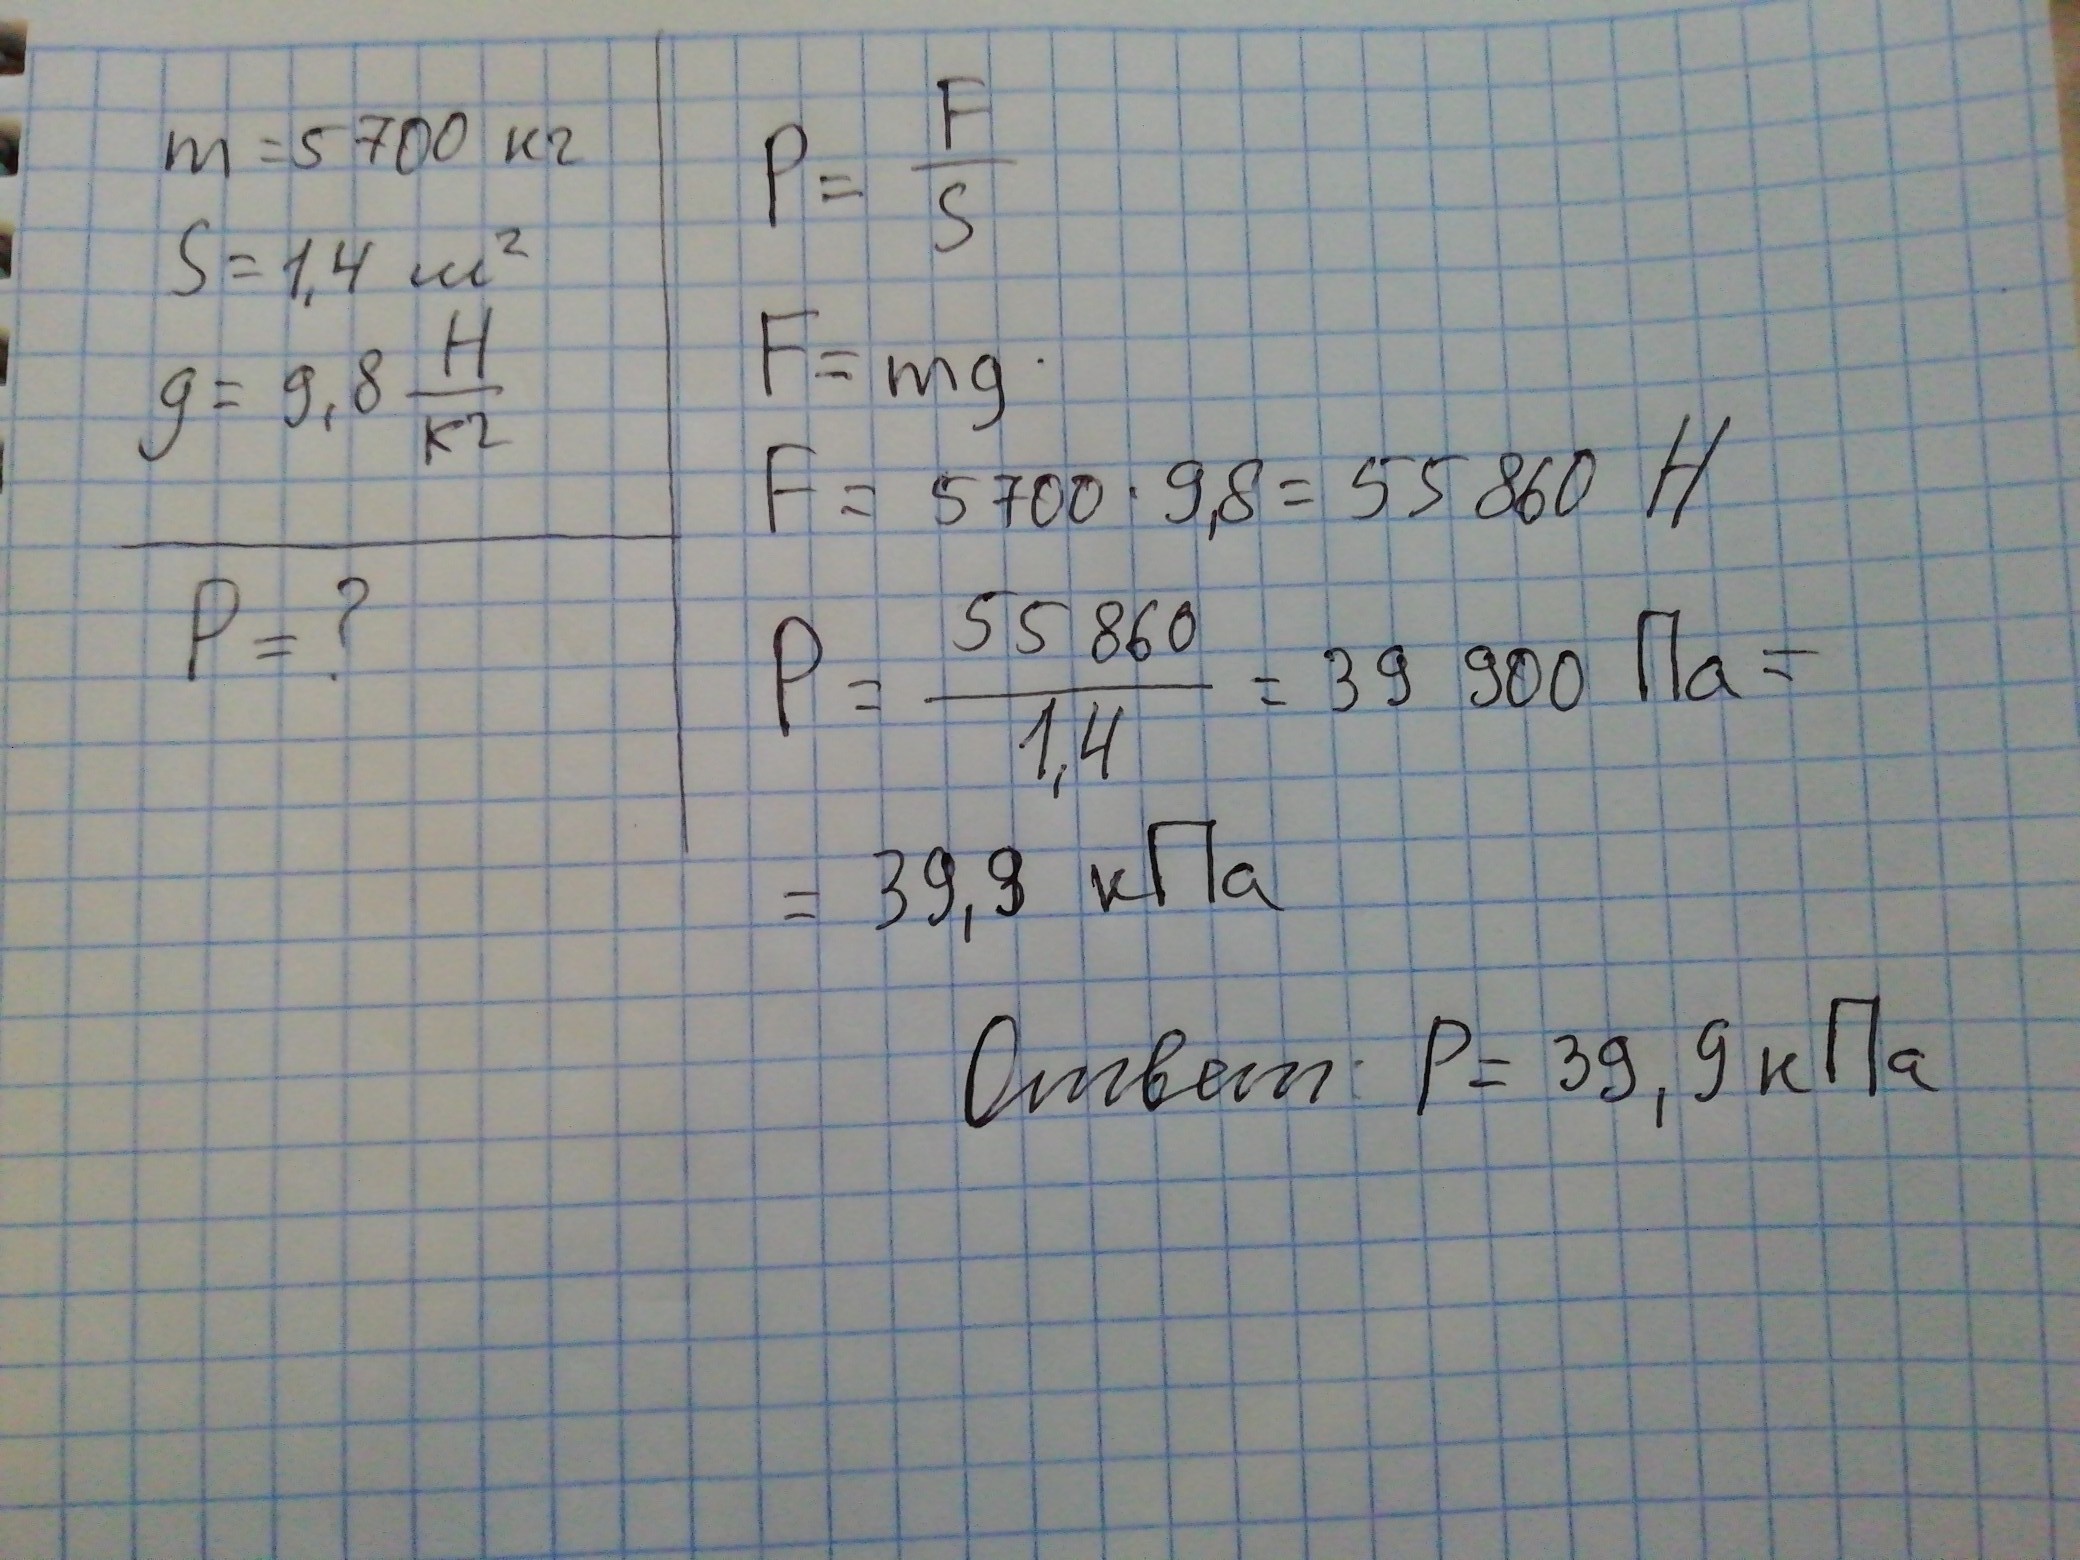 m = 5700 кг
S = 1,4 м²
g = 9,8 Н/кг
P = ?
P = F/S
F = mg
F = 5700 · 9,8 = 55 860 Н
P = 55 860/1,4 = 39 900 Па =
= 39,9 кПа
Ответ: P = 39,9 кПа